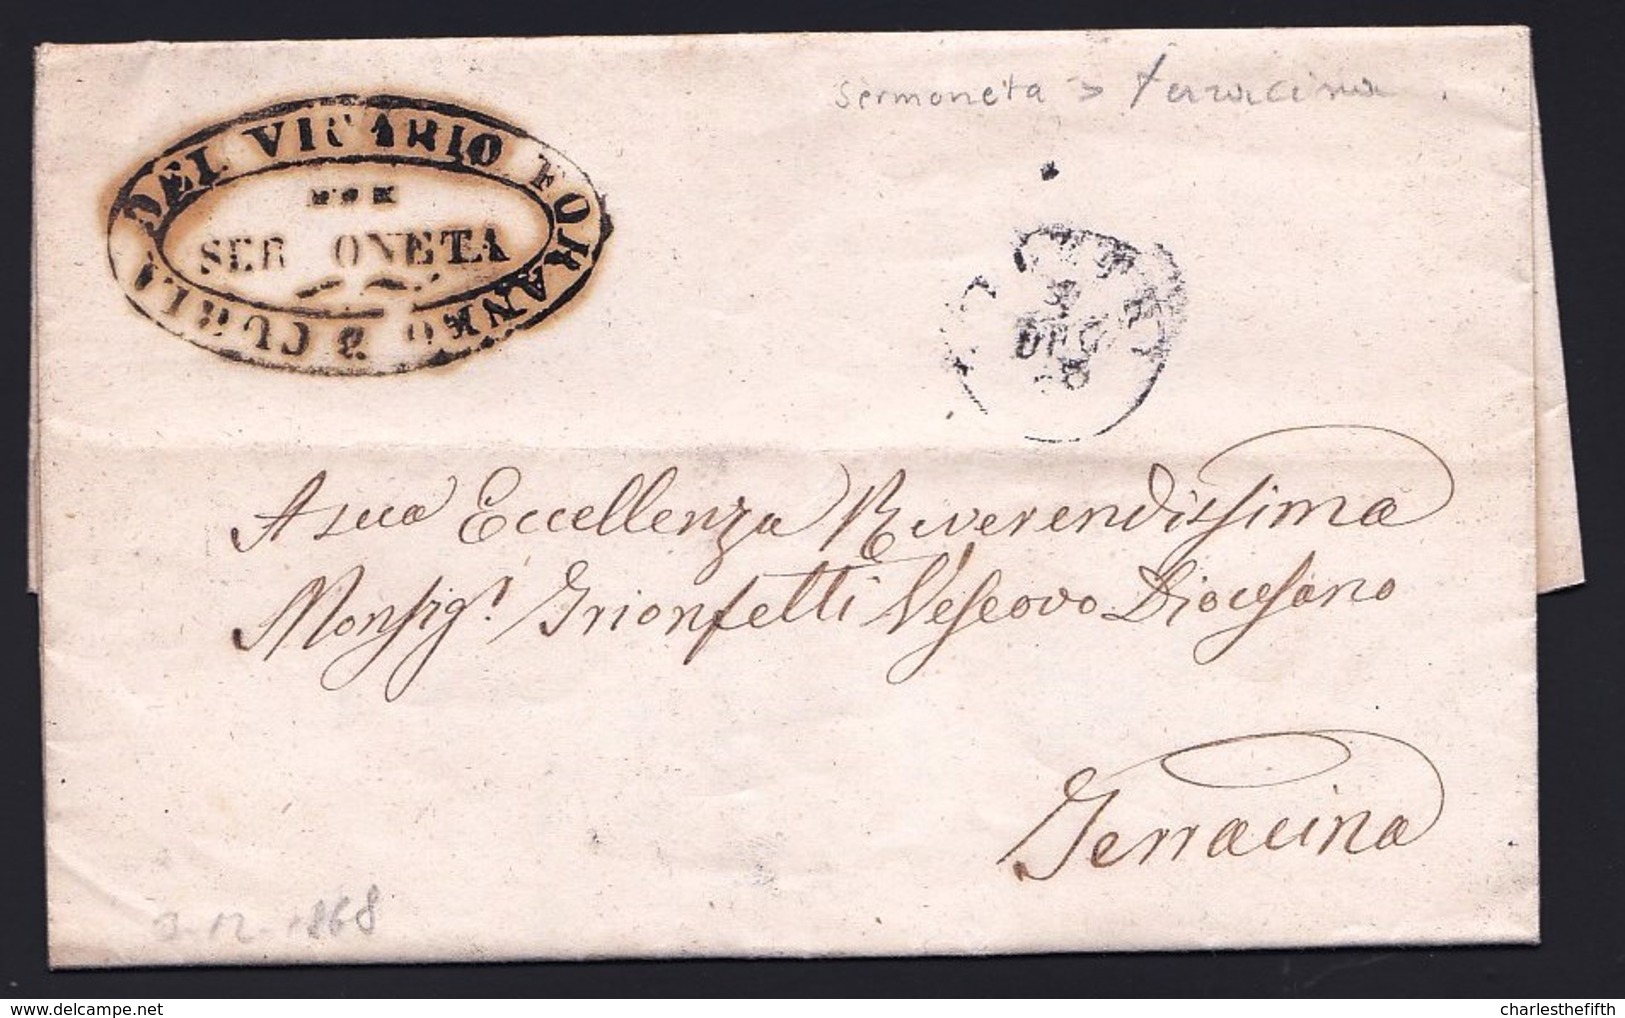 sermoneta > terracina
CURIA DEL VICARIO FORANEO
SER ONETA
VELLETRI
DEC
68
A sua Eccellenza Reverendissima
Monsig.r Trionfetti Vescovo Diocesano
Terracina
3-12-1868
charlesthefifth